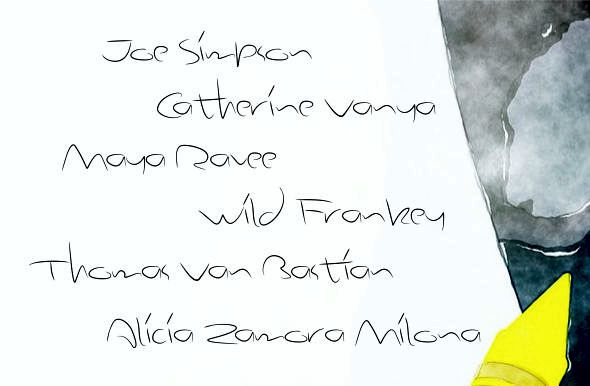 Joe Simpson
Catherine Vanya
Maya Ravee
Wild Frankey
Thomas Van Bastian
Alicia Zamora Milona